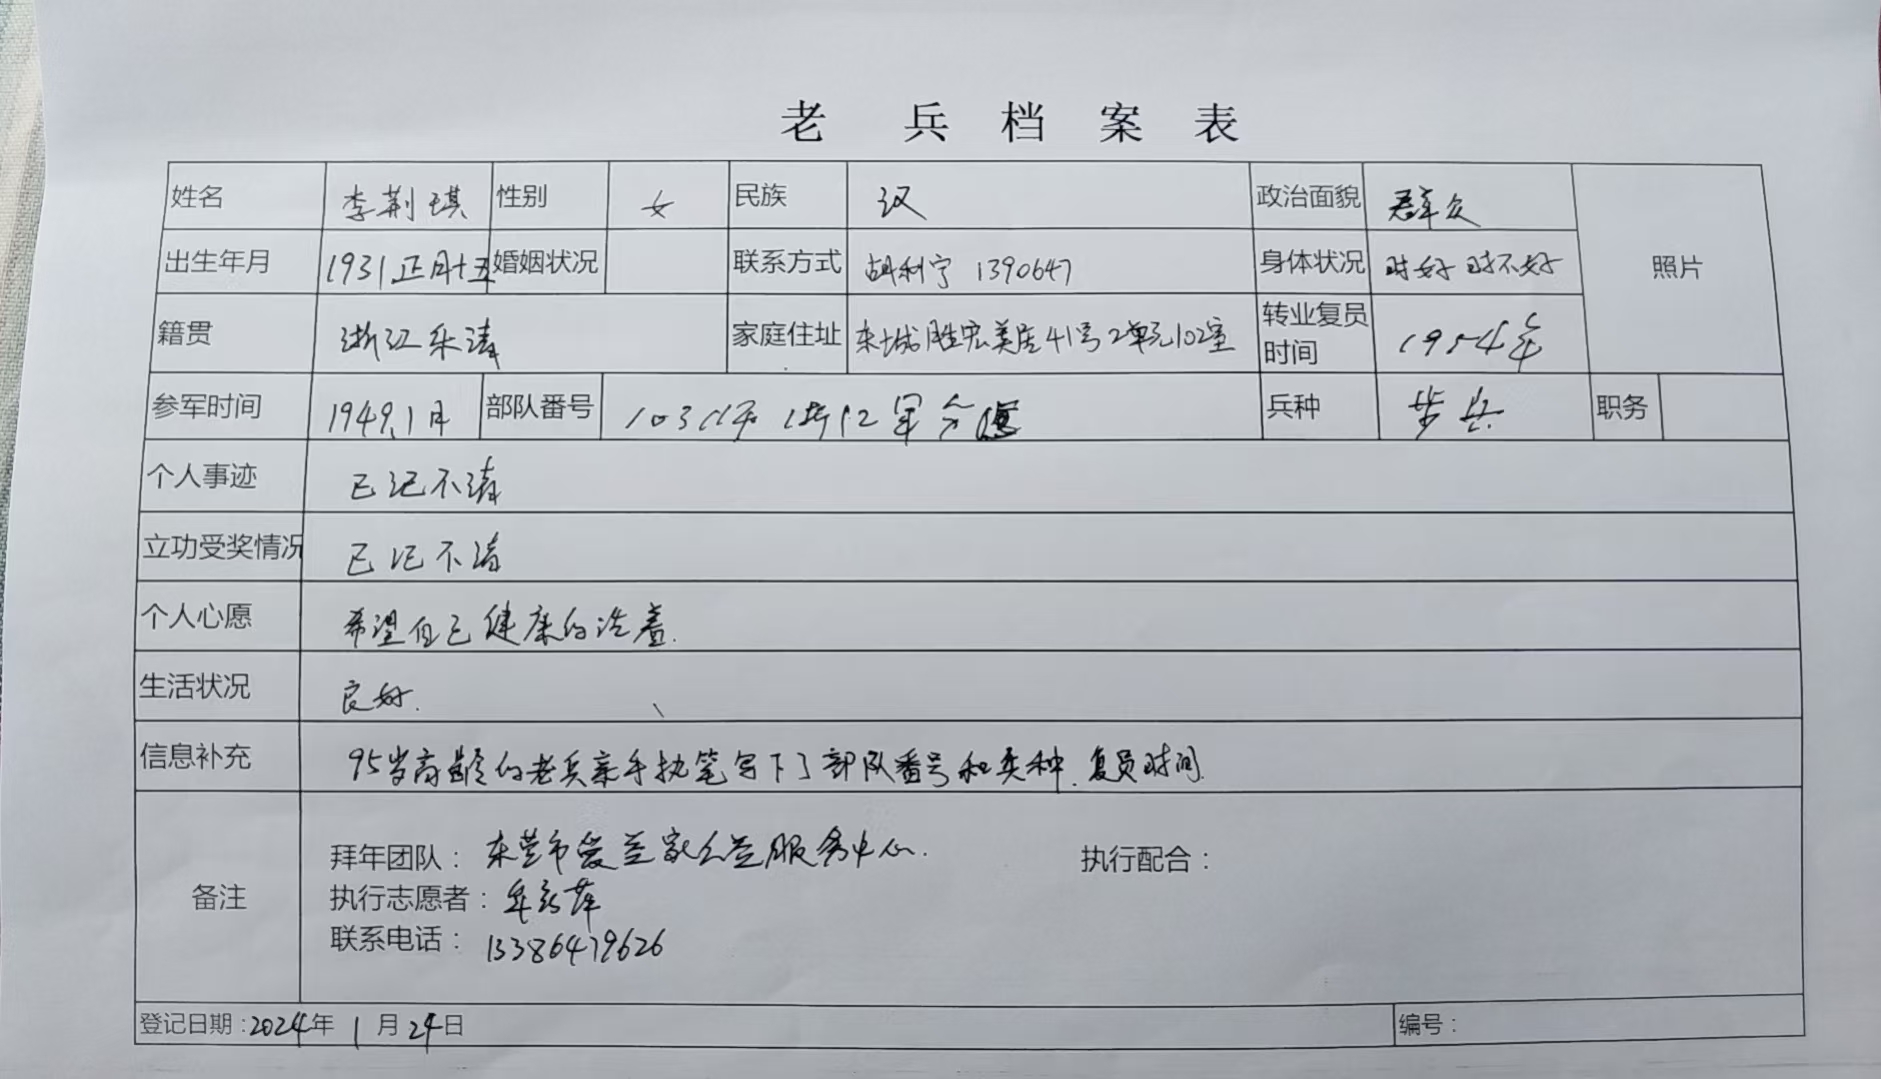 老兵档案表
姓名 李荆琪 性别 女 民族 汉 政治面貌 群众
照片
出生年月 1931正月十五 婚姻状况 联系方式 胡利宁 1390647 身体状况 时好时不好
籍贯 浙江乐清 家庭住址 东城胜宏美居41号2单元102室 转业复员时间 1954年
参军时间 1949.1月 部队番号 军分 兵种 步兵 职务
个人事迹 已记不清
立功受奖情况 已记不清
个人心愿 希望自己健康的活着.
生活状况 良好.
信息补充 95岁高龄的老兵亲手执笔写下了部队番号和类种、复员时间.
备注
拜年团队： 东营市爱益家公益服务中心. 执行配合：
执行志愿者： 牟
联系电话： 13386479626
登记日期：2024年1月24日 编号：